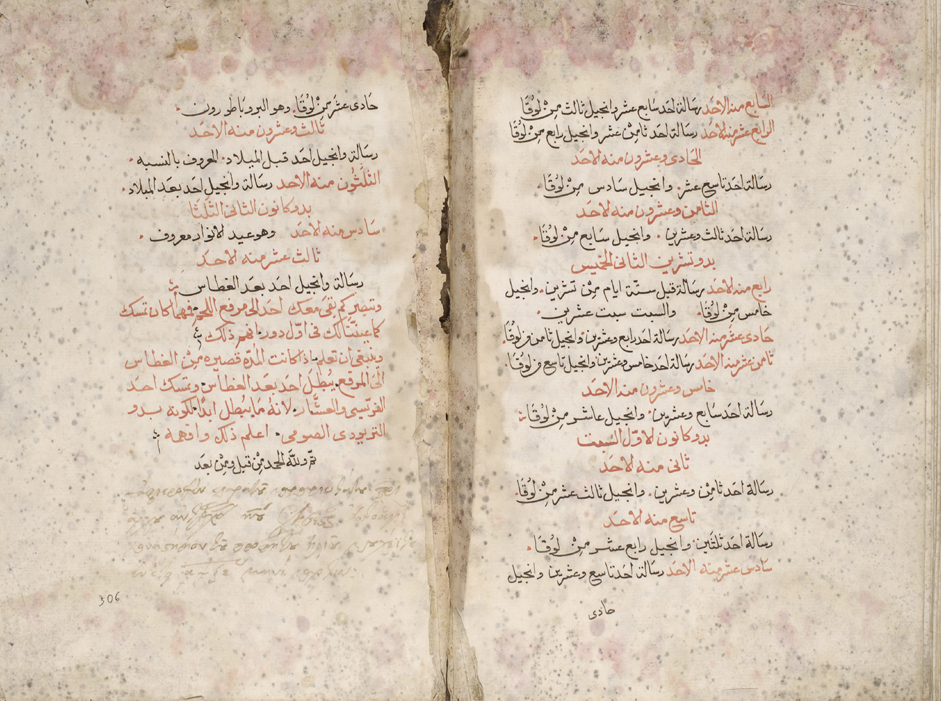 السابع منه الاحد رسالة احد سابع عشر وانجيل ثالث من لوقا
الرابع عشر منه الاحد رسالة احد ثامن عشر وانجيل رابع من لوقا
الحادى وعشرون منه الاحد
رسالة احد تاسع عشر. وانجيل سادس من لوقا.
الثامن وعشرون منه الاحد
رسالة احد ثالث وعشرين. وانجيل سابع من لوقا.
بدو تشرين الثانى الخميس
رابع منه الاحد رسالة قبل ستة ايام من تشرين. وانجيل
خامس من لوقا. والسبت سبت عشرين.
حادى عشر منه الاحد رسالة احد رابع وعشرين وانجيل ثامن من لوقا
ثامن عشر منه الاحد رسالة احد خامس وعشرين وانجيل تاسع من لوقا
خامس وعشرون منه الاحد
رسالة احد سابع وعشرين. وانجيل عاشر من لوقا.
بدو كانون الاول السبت
ثانى منه الاحد
رسالة احد ثامن وعشرين. وانجيل ثالث عشر من لوقا.
تاسع منه الاحد
رسالة احد ثلثين. وانجيل رابع عشر من لوقا.
سادس عشر منه الاحد رسالة احد تاسع وعشرين وانجيل
حادى
حادى عشر من لوقا وهو البروباطورون.
ثالث وعشرون منه الاحد
رسالة وانجيل احد قبل الميلاد. المعروف بالنسبه.
الثلثون منه الاحد رسالة وانجيل احد بعد الميلاد.
بدو كانون الثانى الثلثا
سادس منه الاحد وهو عيد الانوار معروف.
ثالث عشر منه الاحد
رسالة وانجيل احد بعد الغطاس
وتبصر كم بقى معك احد الى مرفع اللحم فمهما كان تمسك
كما عينا لك فى اول دور. افهم ذلك
وينبغى ان تعلم اذا كانت المدة قصيره من الغطاس
الى المرفع يبطل احد بعد الغطاس وتمسك احد
الفريسى والعشار. لانه ما يبطل ابدا لكونه بدو
التريودى الصومى. اعلم ذلك وافهمه
تم ولله الحمد من قبل ومن بعد
306